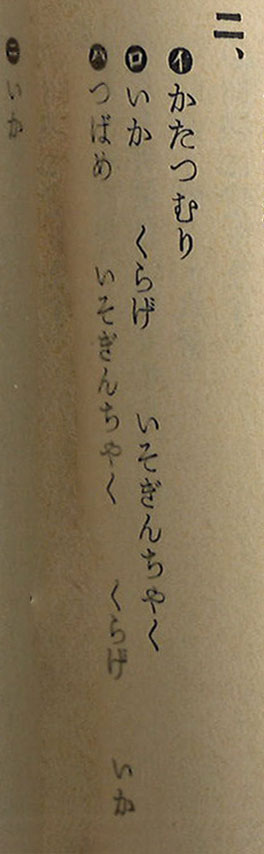 二、
イ かたつむり
ロ いか くらげ いそぎんちやく
ハ つばめ いそぎんちやく くらげ いか
ニ いか